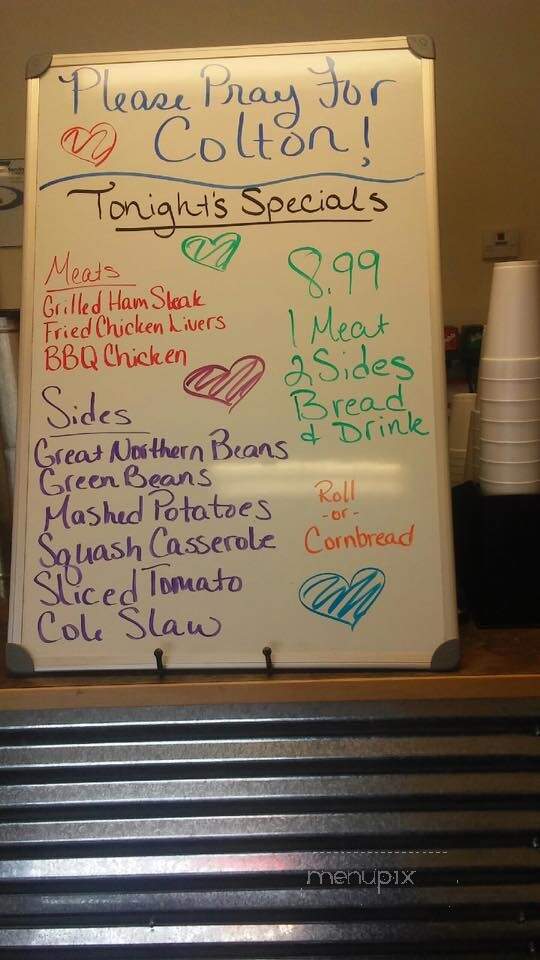 Please Pray For
Colton!
Tonight's Specials
Meats
Grilled Ham Steak
Fried Chicken Livers
BBQ Chicken
Sides
Great Northern Beans
Green Beans
Mashed Potatoes
Squash Casserole
Sliced Tomato
Cole Slaw
8.99
1 Meat
2 Sides
Bread
& Drink
Roll
-or-
Cornbread
menupix